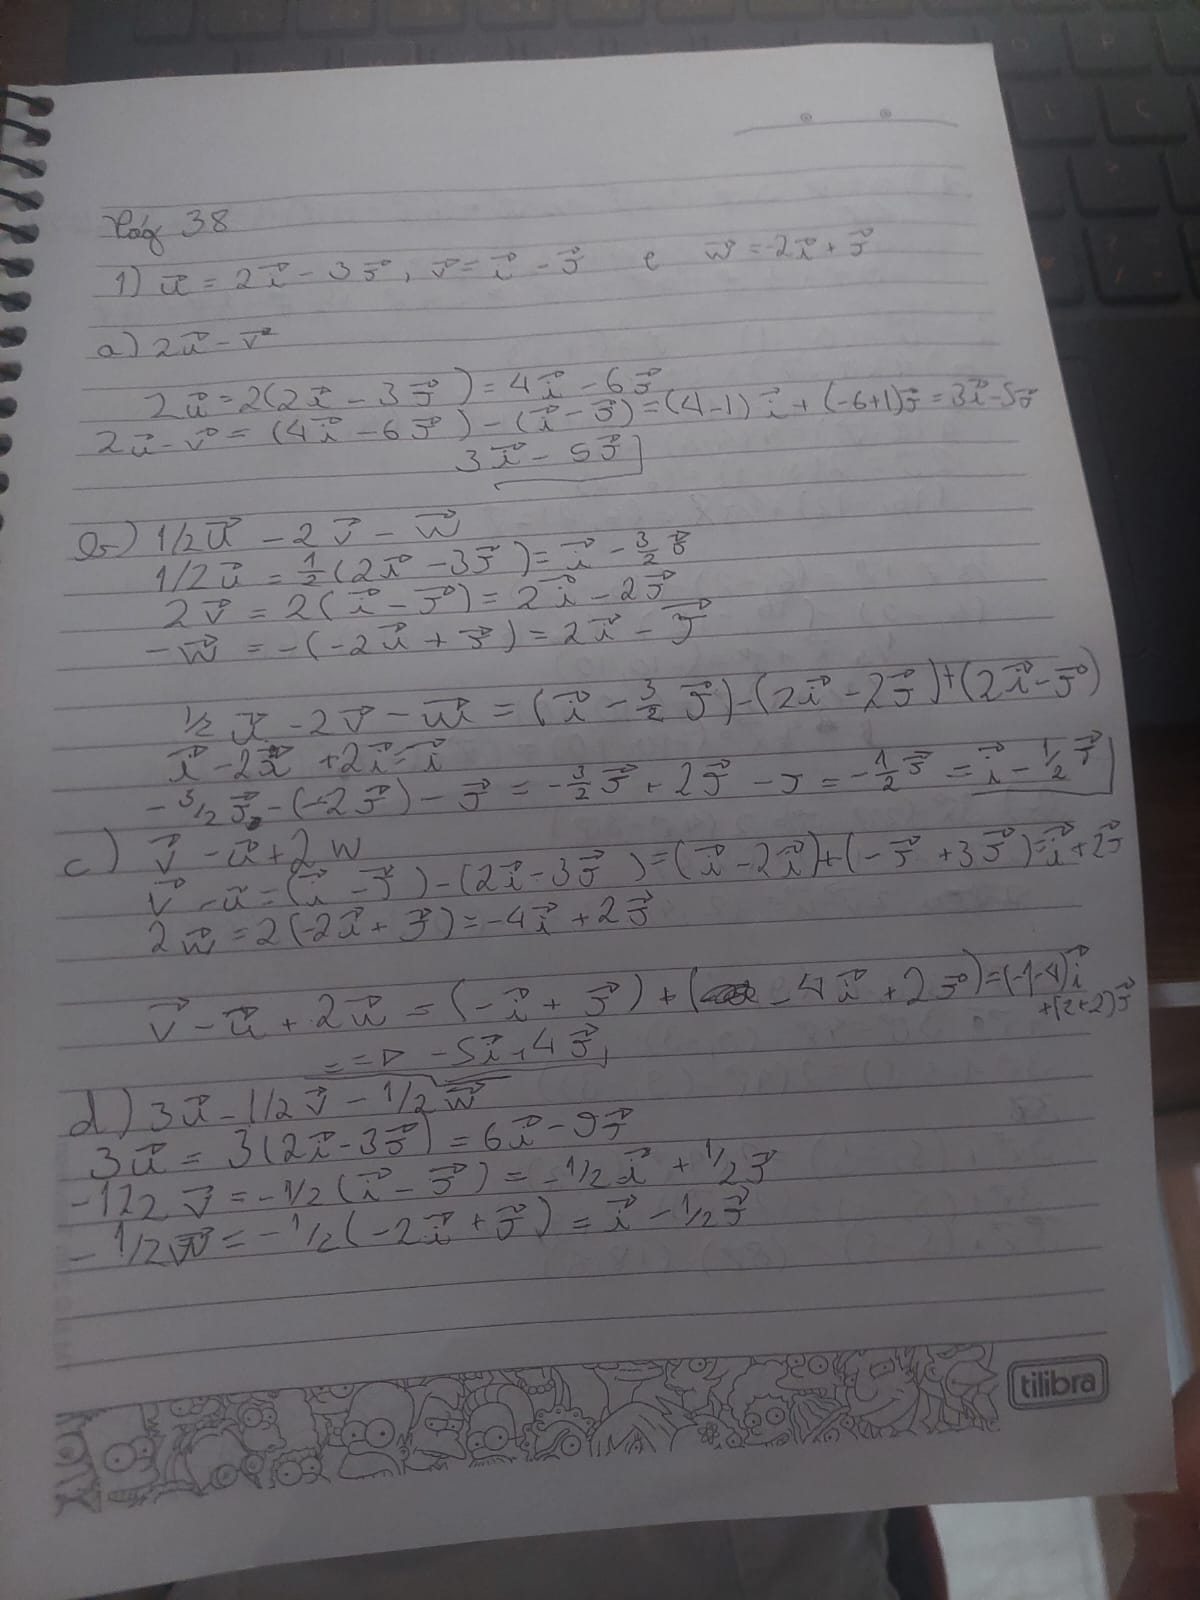 Pág 38
1) u⃗ = 2i⃗ - 3j⃗, v⃗ = i⃗ - j⃗ e w⃗ = -2i⃗ + j⃗
a) 2u⃗ - v⃗
2u⃗ = 2(2i⃗ - 3j⃗) = 4i⃗ - 6j⃗
2u⃗ - v⃗ = (4i⃗ - 6j⃗) - (i⃗ - j⃗) = (4-1)i⃗ + (-6+1)j⃗ = 3i⃗ - 5j⃗
3i⃗ - 5j⃗
b) 1/2u⃗ - 2v⃗ - w⃗
1/2u⃗ = 1/2(2i⃗ - 3j⃗) = i⃗ - 3/2 j⃗
2v⃗ = 2(i⃗ - j⃗) = 2i⃗ - 2j⃗
-w⃗ = -(-2i⃗ + j⃗) = 2i⃗ - j⃗
1/2 u⃗ - 2v⃗ - w⃗ = (i⃗ - 3/2 j⃗) - (2i⃗ - 2j⃗) + (2i⃗ - j⃗)
i⃗ - 2i⃗ + 2i⃗ = i⃗
- 3/2 j⃗ - (-2j⃗) - j⃗ = -3/2 j⃗ + 2j⃗ - j = -1/2 j⃗ = i⃗ - 1/2 j⃗
c) v⃗ - u⃗ + 2w
v⃗ - u⃗ = (i⃗ - j⃗) - (2i⃗ - 3j⃗) = (i⃗ - 2i⃗) + (-j⃗ + 3j⃗) = i⃗ + 2j⃗
2w⃗ = 2(-2i⃗ + j⃗) = -4i⃗ + 2j⃗
v⃗ - u⃗ + 2w⃗ = (-i⃗ + j⃗) + (-4i⃗ + 2j⃗) = (-1-4)i⃗
+(2+2)j⃗
= -5i⃗ + 4j⃗
d) 3u⃗ - 1/2v⃗ - 1/2w⃗
3u⃗ = 3(2i⃗ - 3j⃗) = 6i⃗ - 9j⃗
-1/2 v⃗ = -1/2(i⃗ - j⃗) = -1/2i⃗ + 1/2j⃗
- 1/2w⃗ = - 1/2(-2i⃗ + j⃗) = i⃗ - 1/2j⃗
tilibra